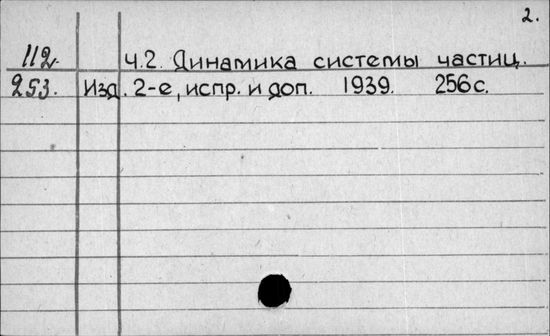 2.
112. ч.2. Динамика системы частиц.
253. Изд. 2-е, испр. и доп. 1939. 256с.